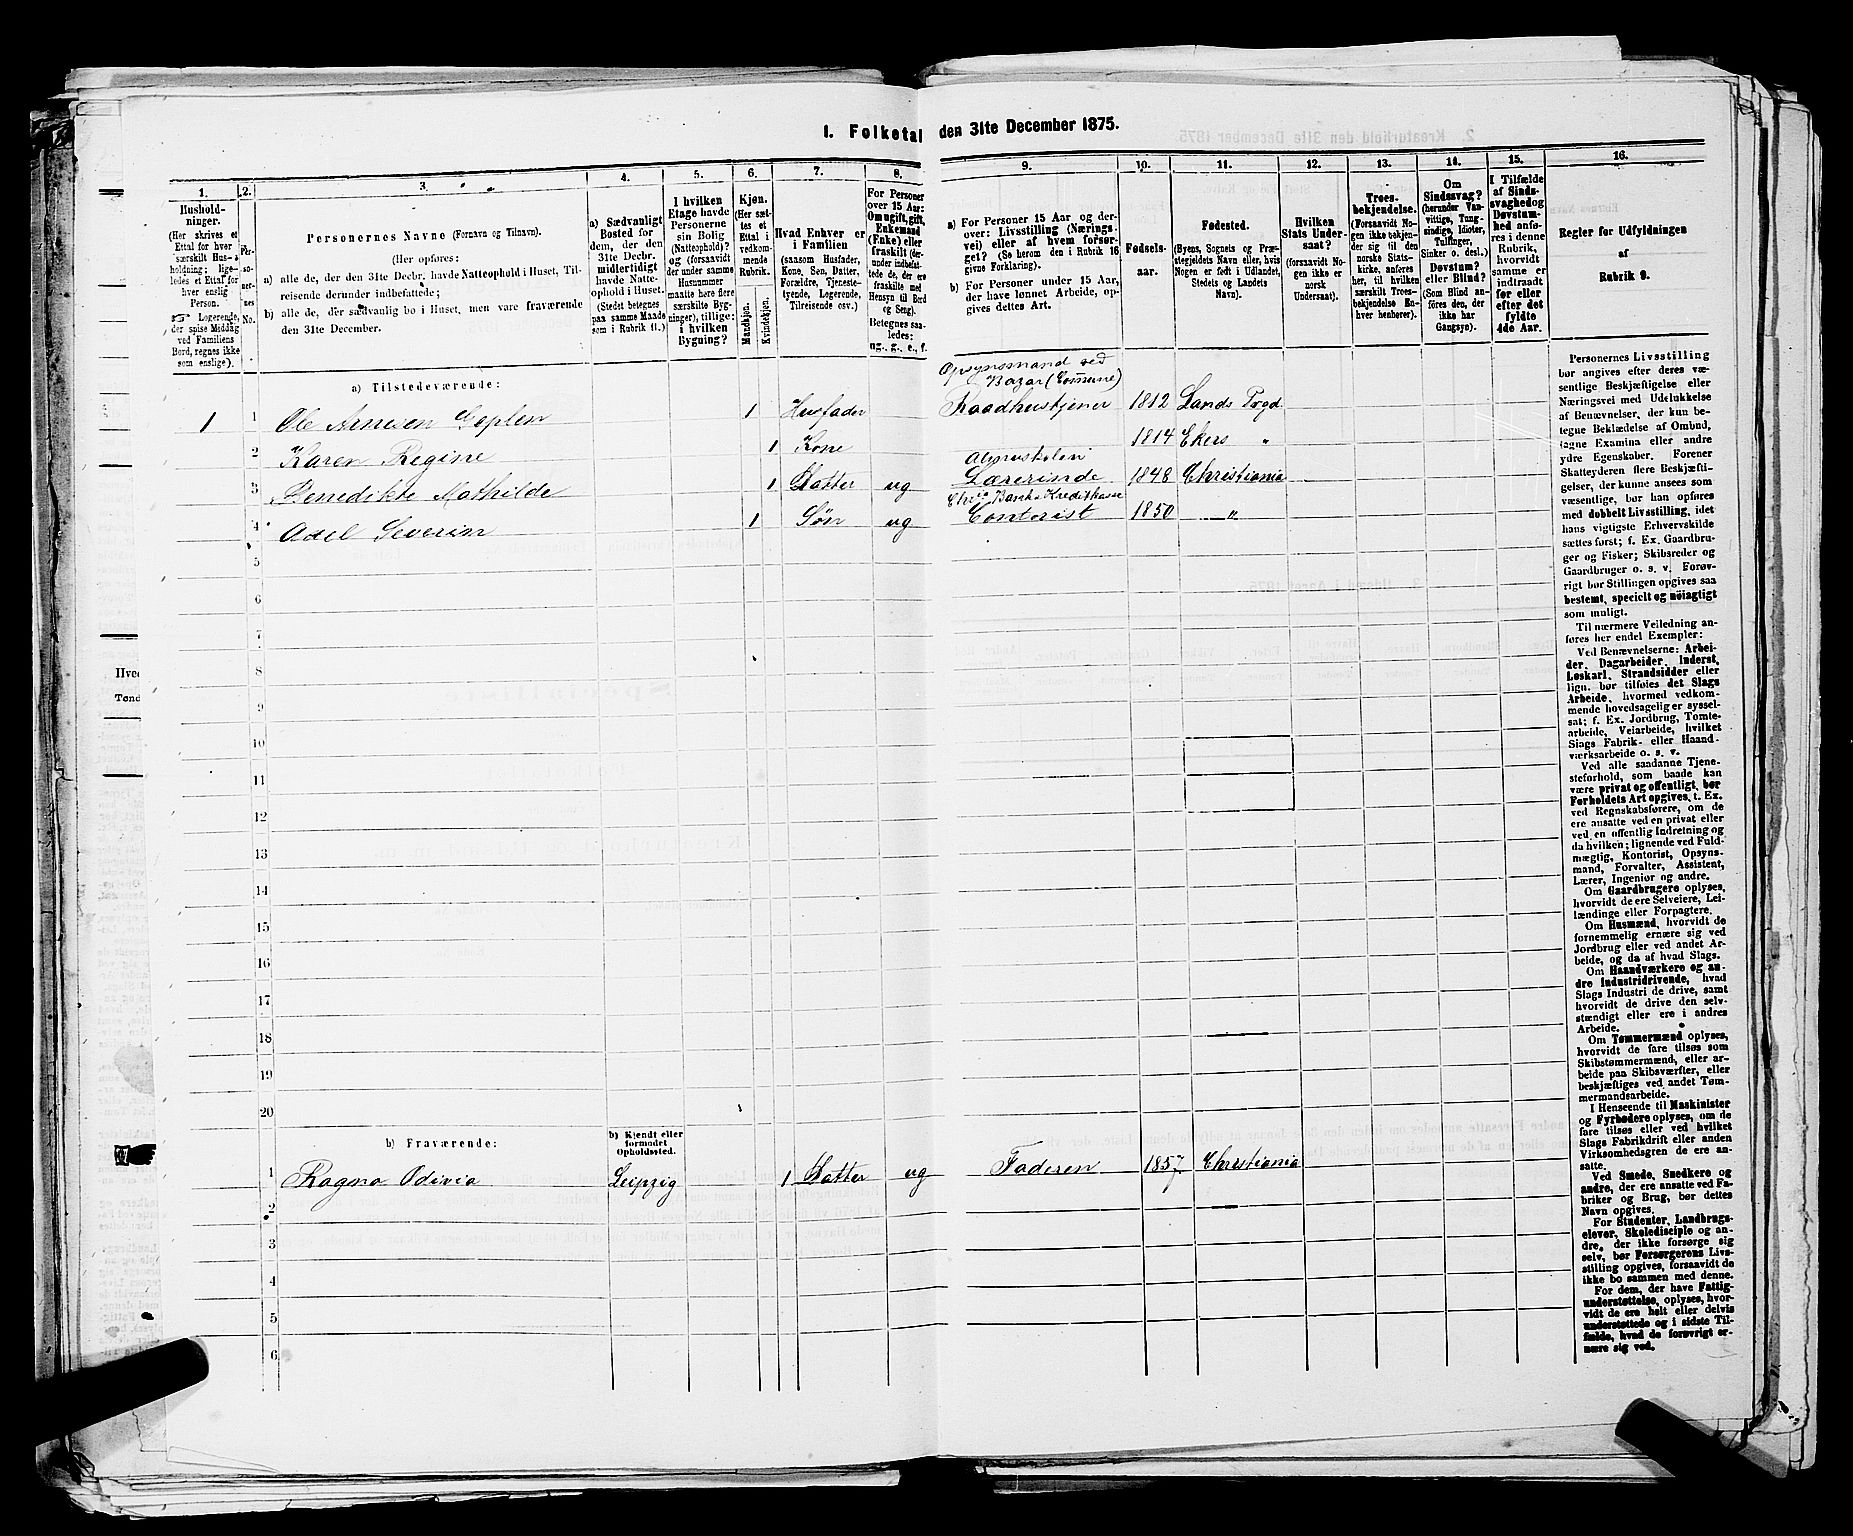 1. Folketal den 31te December 1875.
1.
Husholdninger.
(Her skrives et
Ettal for hver
særskilt Husholdning; ligeledes
et Ettal for
hver enslig
Person.
Logerende,
der spise Middag
ved Familiens
Bord, regnes ikke
som enslige).
2.
Personernes
No.
3.
Personernes Navne (Fornavn og Tilnavn).
(Her opføres:
a) alle de, der den 31te Decbr. havde Natteophold i Huset, Tilreisende derunder indbefattede;
b) alle de, der sædvanlig bo i Huset, men vare fraværende
den 31te December.
4.
a) Sædvanligt
Bosted for
dem, der den
31te Decbr.
midlertidigt
havde Natteophold i Huset.
(Stedet betegnes
paa samme Maade
som i Rubrik 11.)
5.
I hvilken
Etage havde
Personerne
sin Bolig
(Natteophold)?
og (forsaavidt
der under samme
Husnummer
maatte høre flere
særskilte Bygninger), tillige:
i hvilken
Bygning?
6.
Kjøn.
(Her sættes et
Ettal i
vedkommende
Rubrik.
Mandkjøn.
Kvindekjøn.
7.
Hvad Enhver er
i Familien
(saasom Husfader,
Kone, Søn, Datter,
Forældre, Tjenestetyende, Logerende,
Tilreisende osv.)
8.
For Personer
over 15 Aar:
Om ugift, gift,
Enkemand
(Enke) eller
fraskilt
Betegnes saaledes:
ug., g., e., f.
9.
a) For Personer 15 Aar og derover: Livsstilling (Næringsvei) eller af hvem forsørget? (Se herom den i Rubrik 16
givne Forklaring).
b) For Personer under 15 Aar,
der have lønnet Arbeide, opgives dettes Art.
10.
Fødselsaar.
11.
Fødested.
(Byens, Sognets og Præstegjeldets Navn eller, hvis
Nogen er født i Udlandet,
Stedets og Landets
Navn).
12.
Hvilken
Stats Undersaat?
(Opgives for
Nogen ikke er
norsk
Undersaat).
13.
Troesbekjendelse.
(Forsaavidt Nogen ikke bekjender sig til den
norske Statskirke, anføres
her, til hvilken
særskilt Troesbekjendelse Enhver henhører).
14.
Om
Sindssvag?
(herunder Vanvittige, Tungsindige, Idioter,
Tullinger,
Sinker o. desl.)
Døvstum?
eller Blind?
(Som Blind anføres den, der
ikke har
Gangsyn).
15.
I Tilfælde
af Sindssvaghed og
Døvstumhed anføres i denne
Rubrik,
hvorvidt
samme er
indtraadt
før eller
efter det
fyldte
4de Aar.
16.
Regler for Udfyldningen
af
Rubrik 9.
a) Tilstedeværende:
Opsynsmand ved
Bazar (Comune)
1 1 Ole Arnesen Goplen 1 Husfader Raadhustjener 1812 Lands Prgd
2 Karen Regine 1 Kone 1814 Ekers "
Almueskolen
3 Benedikte Mathilde 1 Datter ug Lærerinde 1848 Christiania
Chr.a Bank & Kreditkasse
4 Adel Severin 1 Søn ug Contorist 1850 "
5
6
7
8
9
10
11
12
13
14
15
16
17
18
19
20
b) Fraværende:
b) Kjendt eller
formodet
Opholdssted.
1 Ragna Odivia Leipzig 1 Datter ug Faderen 1857 Christiania
2
3
4
5
6
Personernes Livsstilling
bør angives efter deres væsentlige Beskjæftigelse eller
Næringsvei med Udelukkelse
af Benævnelser, der kun betegne Beklædelse af Ombud,
tagne Examina eller andre
ydre Egenskaber. Forener
Skatteyderen flere Beskjæftigelser, der kunne ansees som
væsentlige, bør han opføres
med dobbelt Livsstilling, idet
hans vigtigste Erhvervskilde
sættes først; f. Ex. Gaardbruger og Fisker; Skibsreder og
Gaardbruger o. s. v. Forøvrigt bør Stillingen opgives saa
bestemt, specielt og nøiagtigt
som muligt.
Til nærmere Veiledning anføres her endel Exempler:
Ved Benævnelserne: Arbeider, Dagarbeider, Inderst,
Løskarl, Strandsidder eller
lign. bør tilføies det Slags
Arbeide, hvormed vedkommende hovedsagelig er sysselsat; f. Ex. Jordbrug, Tomtearbeide, Veiarbeide, hvilket
Slags Fabrik- eller Haandværksarbeide o. s. v.
Ved alle saadanne Tjenesteforhold, som baade kan
være privat og offentligt, bør
Forholdets Art opgives, t. Ex.
ved Regnskabsførere, om de
ere ansatte ved en privat eller
ved en offentlig Indretning og
da hvilken; lignende ved Fuldmægtig, Kontorist, Opsynsmand, Forvalter, Assistent,
Lærer, Ingeniør og andre.
Om Gaardbrugere oplyses,
hvorvidt de ere Selveiere, Leilændinge eller Forpagtere.
Om Husmænd, hvorvidt de
fornemmelig ernære sig ved
Jordbrug eller ved andet Arbeide, og da af hvad Slags.
Om Haandværkere og andre Industridrivende, hvad
Slags Industri de drive, samt
hvorvidt de drive den selvstændigt eller ere i andres
Arbeide.
Om Tømmermænd oplyses,
hvorvidt de fare tilsøs som
Skibstømmermænd, eller arbeide paa Skibsværfter, eller
beskjæftiges ved andet Tømmermandsarbeide.
I Henseende til Maskinister
og Fyrbødere oplyses, om de
fare tilsøs eller ved hvilket
Slags Fabrikdrift eller anden
Virksomhedsgren de ere ansatte.
Ved Smede, Snedkere og
andre, der ere ansatte ved Fabriker og Brug, bør dettes
Navn opgives.
For Studenter, Landbrugselever, Skoledisciple og andre, der ikke forsørge sig
selv, bør Forsørgerens Livsstilling opgives, forsaavidt de
ikke bo sammen med denne.
For dem, der have Fattigunderstøttelse, oplyses, hvorvidt de ere helt eller delvis
understøttede og i sidste Tilfælde, hvad de forøvrigt ernære sig ved.